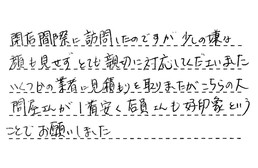 閉店間際に訪問したのですが 少しの嫌な
顔も見せず とても親切に対応してくださいました
いくつかの業者に見積もりを取りましたが こちらの大
問屋さんが1番安く 店員さんも好印象という
ことでお願いしました